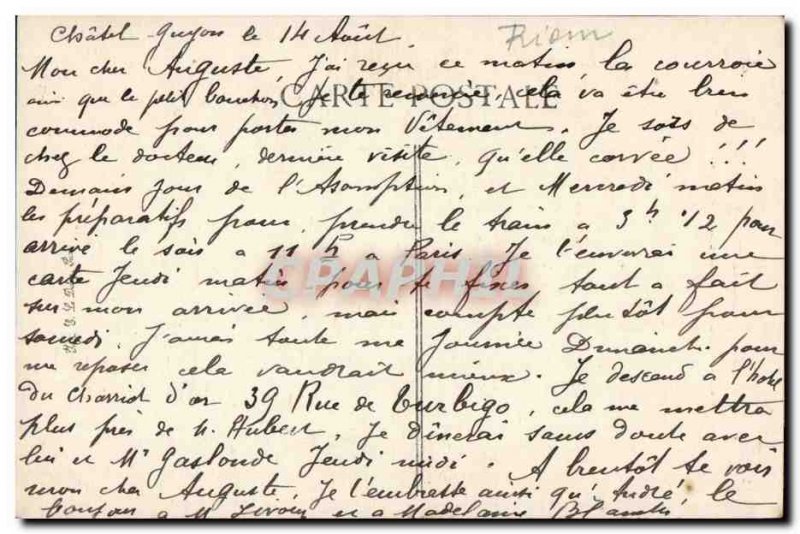 Châtel Guyon le 14 Août. Riom
Mon cher Auguste, J'ai reçu ce matin la courroie
ainsi que le petit bouchon, Je te remercie, cela va être bien
CARTE POSTALE
commode pour porter mon Vêtement. Je sors de
chez le docteur, dernière visite, qu'elle corvée !!!
Demain jour de l'Assomption, et Mercredi matin
les préparatifs pour prendre le train a 3h 1/2 pour
arrivé le soir a 11h a Paris. Je t'enverrai une
carte Jeudi matin pour te fixer tout a fait
CPAPHIL
sur mon arrivée, mais compte plutôt pour
samedi, J'aurai toute ma Journée Dimanche pour
me reposer cela vaudrait mieux. Je descend a l'hotel
du Charriot d'or 39 Rue de Turbigo, cela me mettra
plus près de H. Hubert, Je dînerai sans doute avec
lui et Mr Gaslonde Jeudi midi. A bientôt te voir
mon cher Auguste, Je t'embrasse ainsi qu'André, le
bonjour a M et a Madelaine Blanche